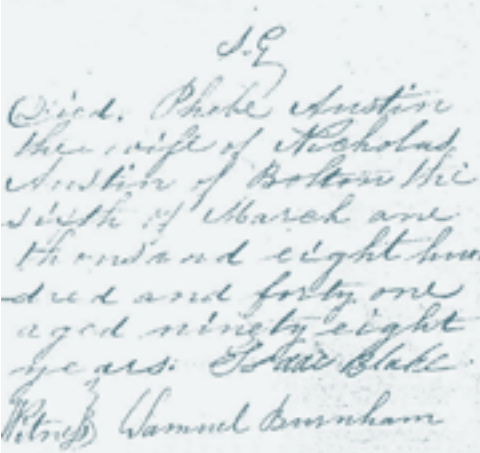 S.G
Died. Phebe Austin
the wife of Nicholas
Austin of Bolton the
sixth of March one
thousand eight hun
dred and forty one
aged ninety eight
years. Isaac Blake
Witness} Samuel Burnham